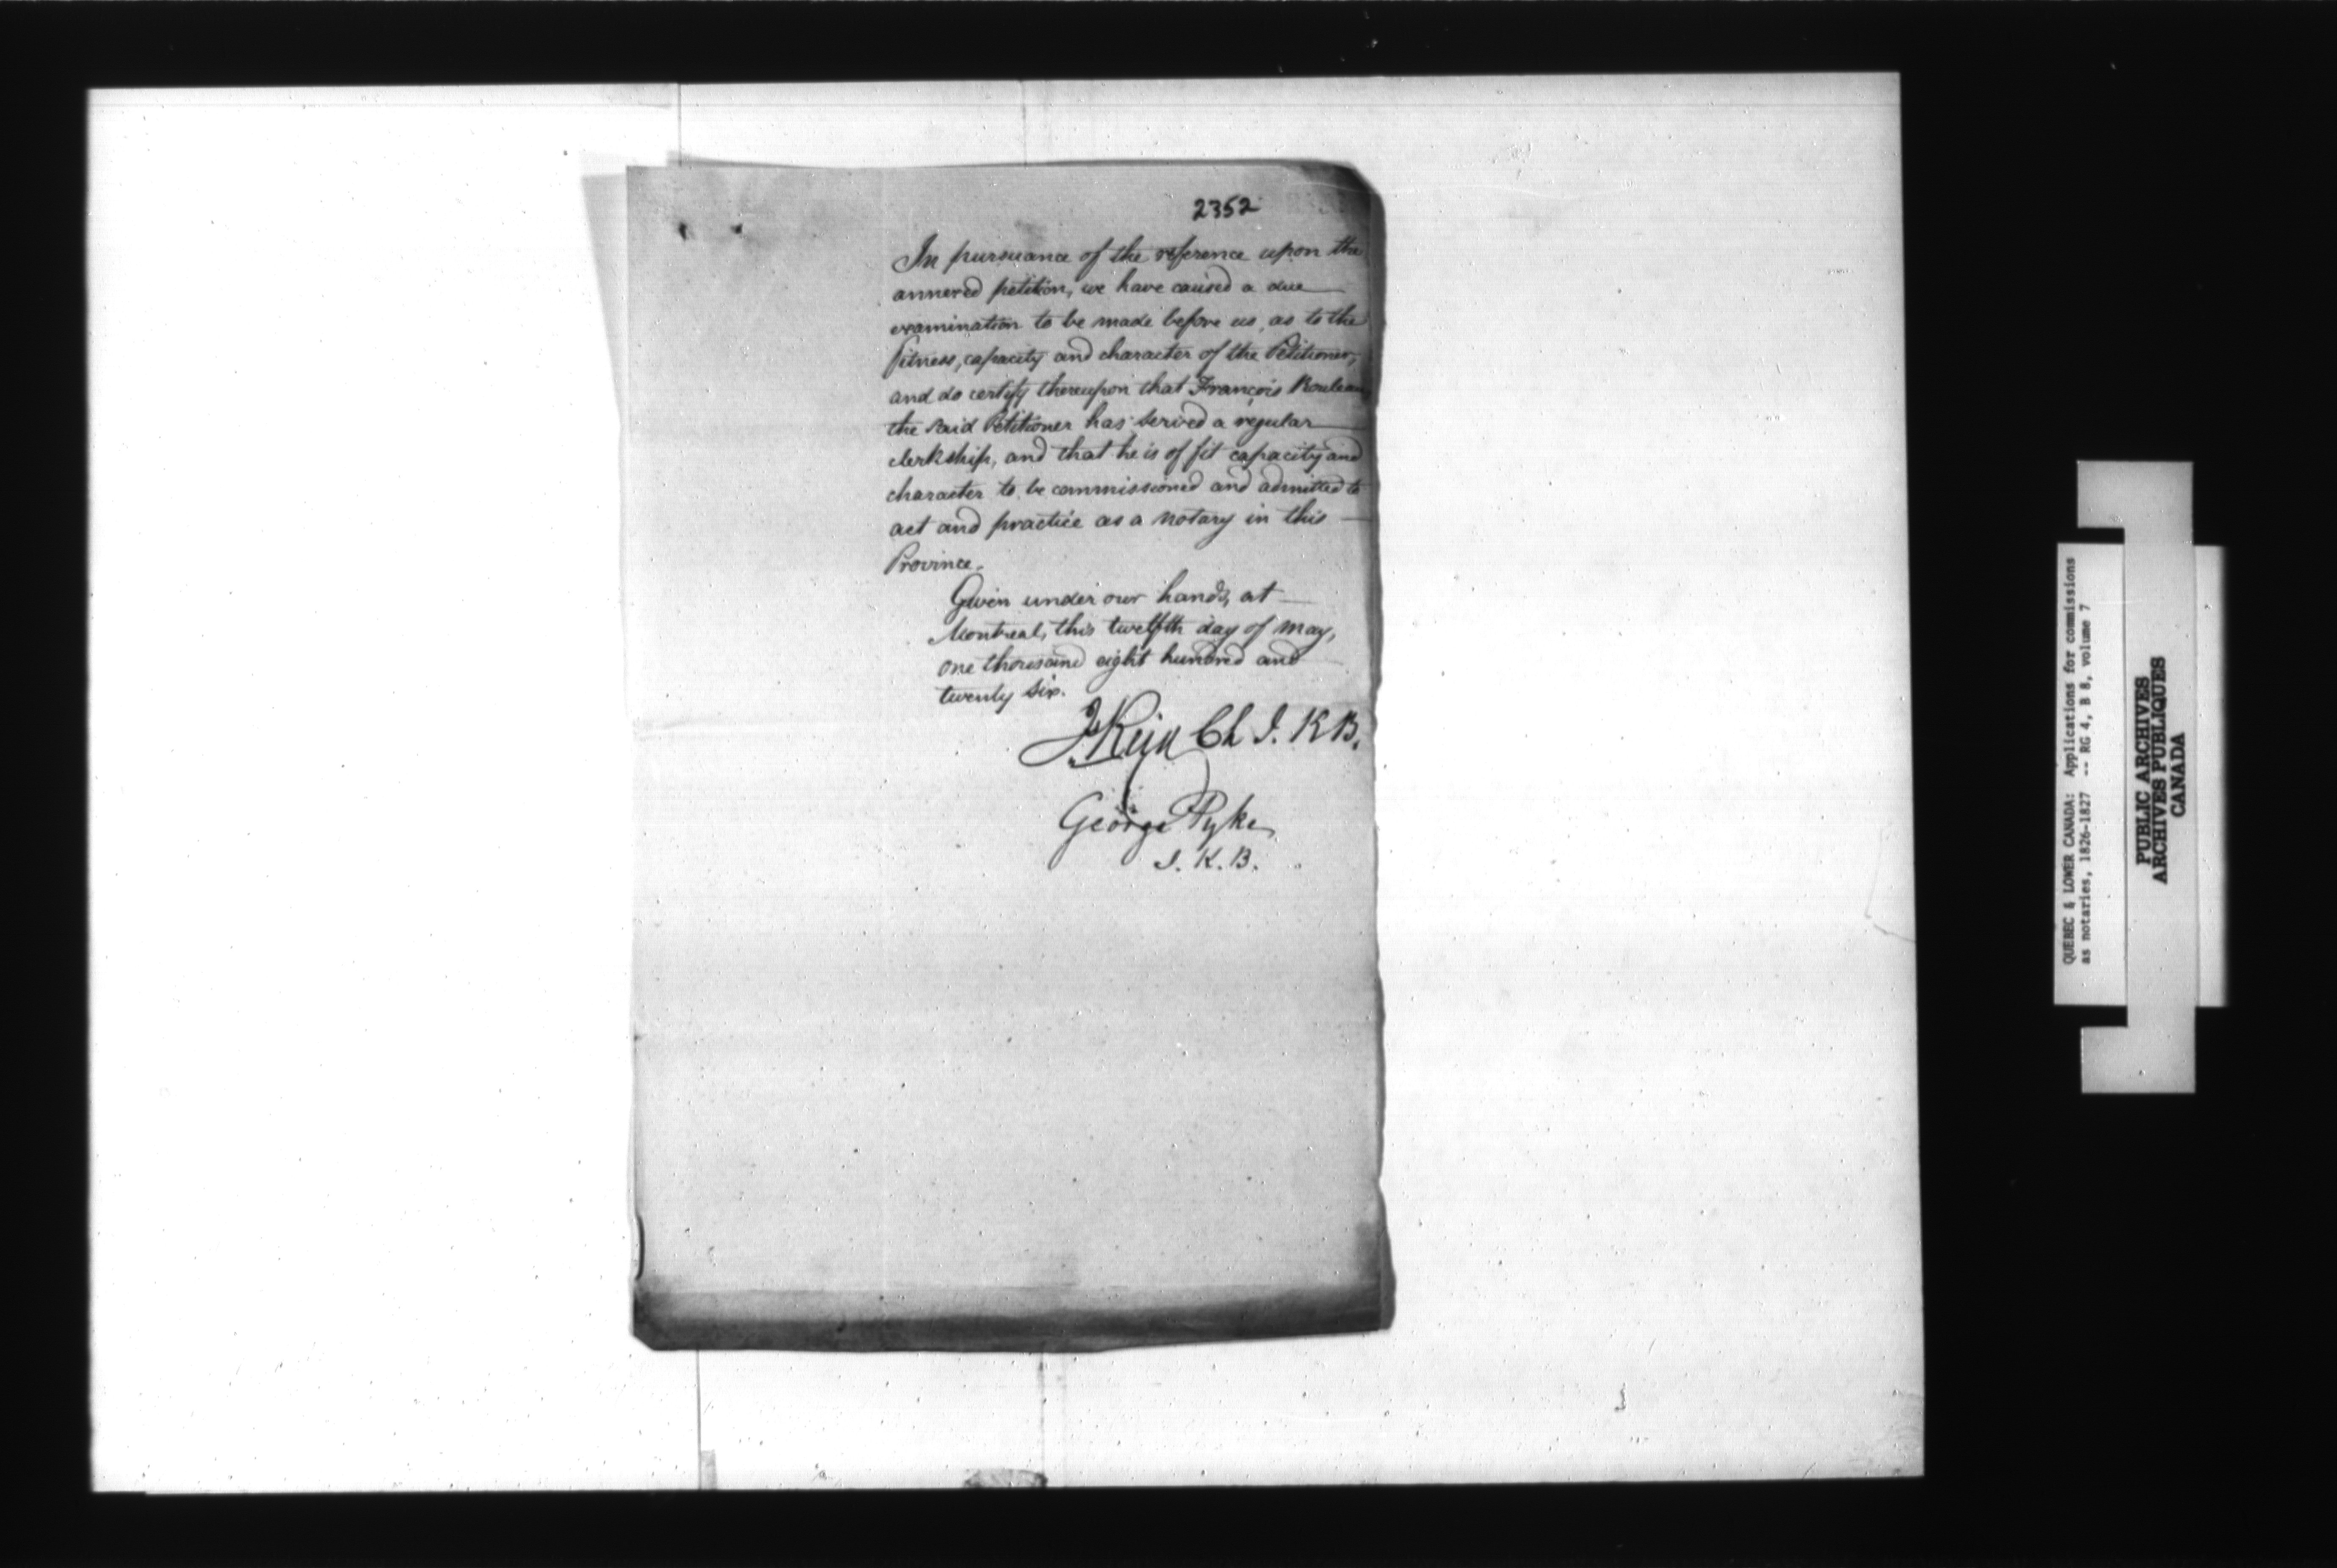 2352
In pursuance of the reference upon the
annexed petition, we have caused a due
examination to be made before us, as to the
fitness, capacity and character of the Petitioner,
and do certify thereupon that François Rouleau
the said Petitioner has served a regular
clerkship, and that he is of fit capacity and
character to be commissioned and admitted to
act and practice as a notary in this
Province.
Given under our hands, at
Montreal, this twelfth day of may,
one thousand eight hundred and
twenty six.
J Reid Ch J. K B.
George Pyke
J. K. B.
QUEBEC & LOWER CANADA: Applications for commissions
as notaries, 1826-1827 -- RG 4, B 8, volume 7
PUBLIC ARCHIVES
ARCHIVES PUBLIQUES
CANADA